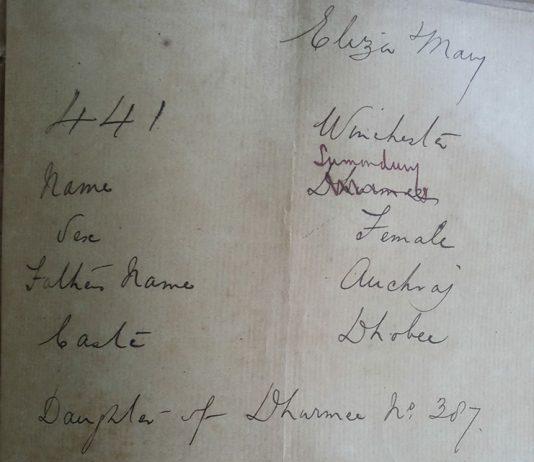 Eliza Mary
441 Winchester
Summdury
Name Dhurmee
Sex Female
Father's Name Auchraj
Caste Dhobee
Daughter of Dhurmee No. 387.